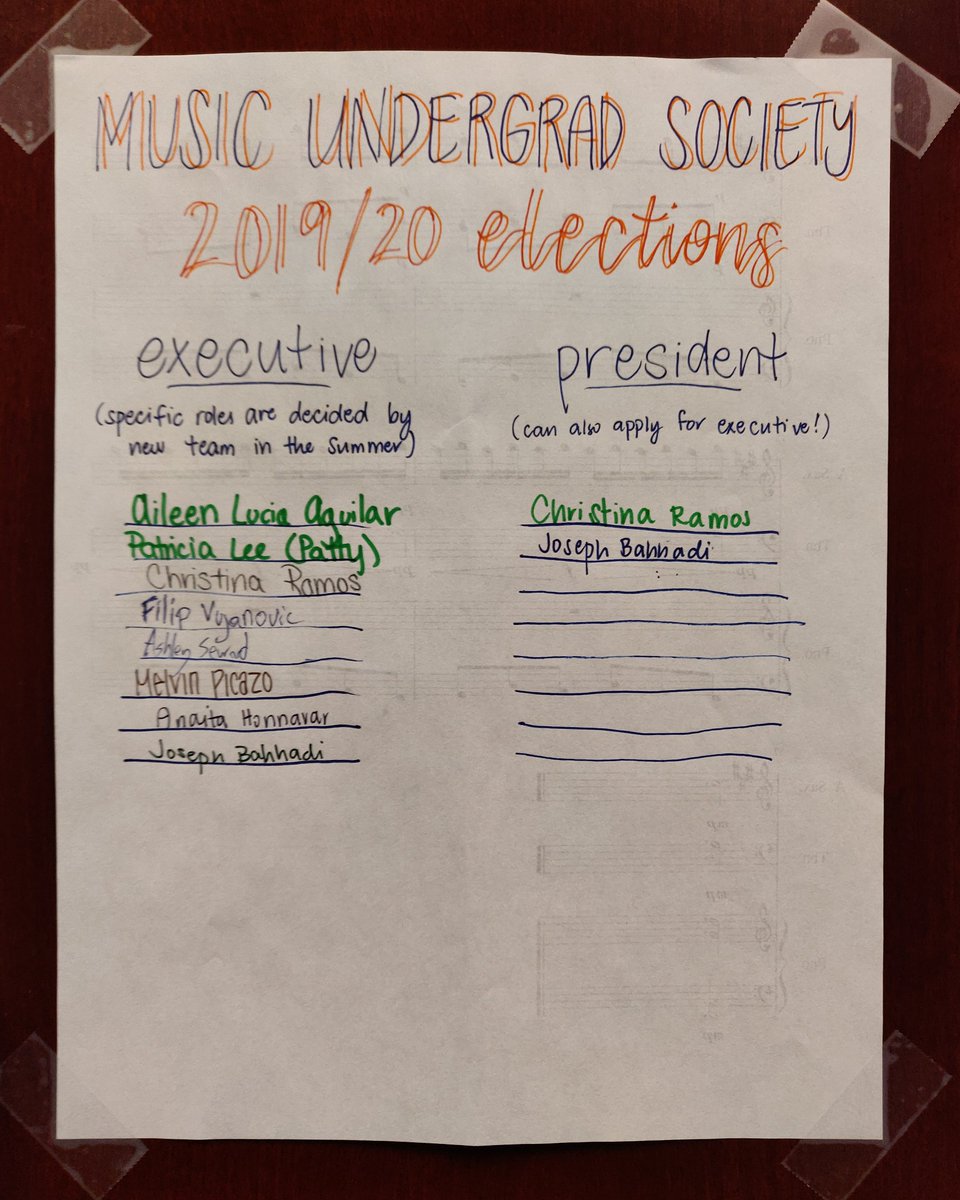 MUSIC UNDERGRAD SOCIETY
2019/20 elections
executive
(specific roles are decided by
new team in the summer)
Aileen Lucia Aguilar
Patricia Lee (Patty)
Christina Ramos
Filip Vujanovic
Ashley
Melvin Picazo
Anaita Honnavar
Joseph Bahhadi
president
(can also apply for executive!)
Christina Ramos
Joseph Bahhadi